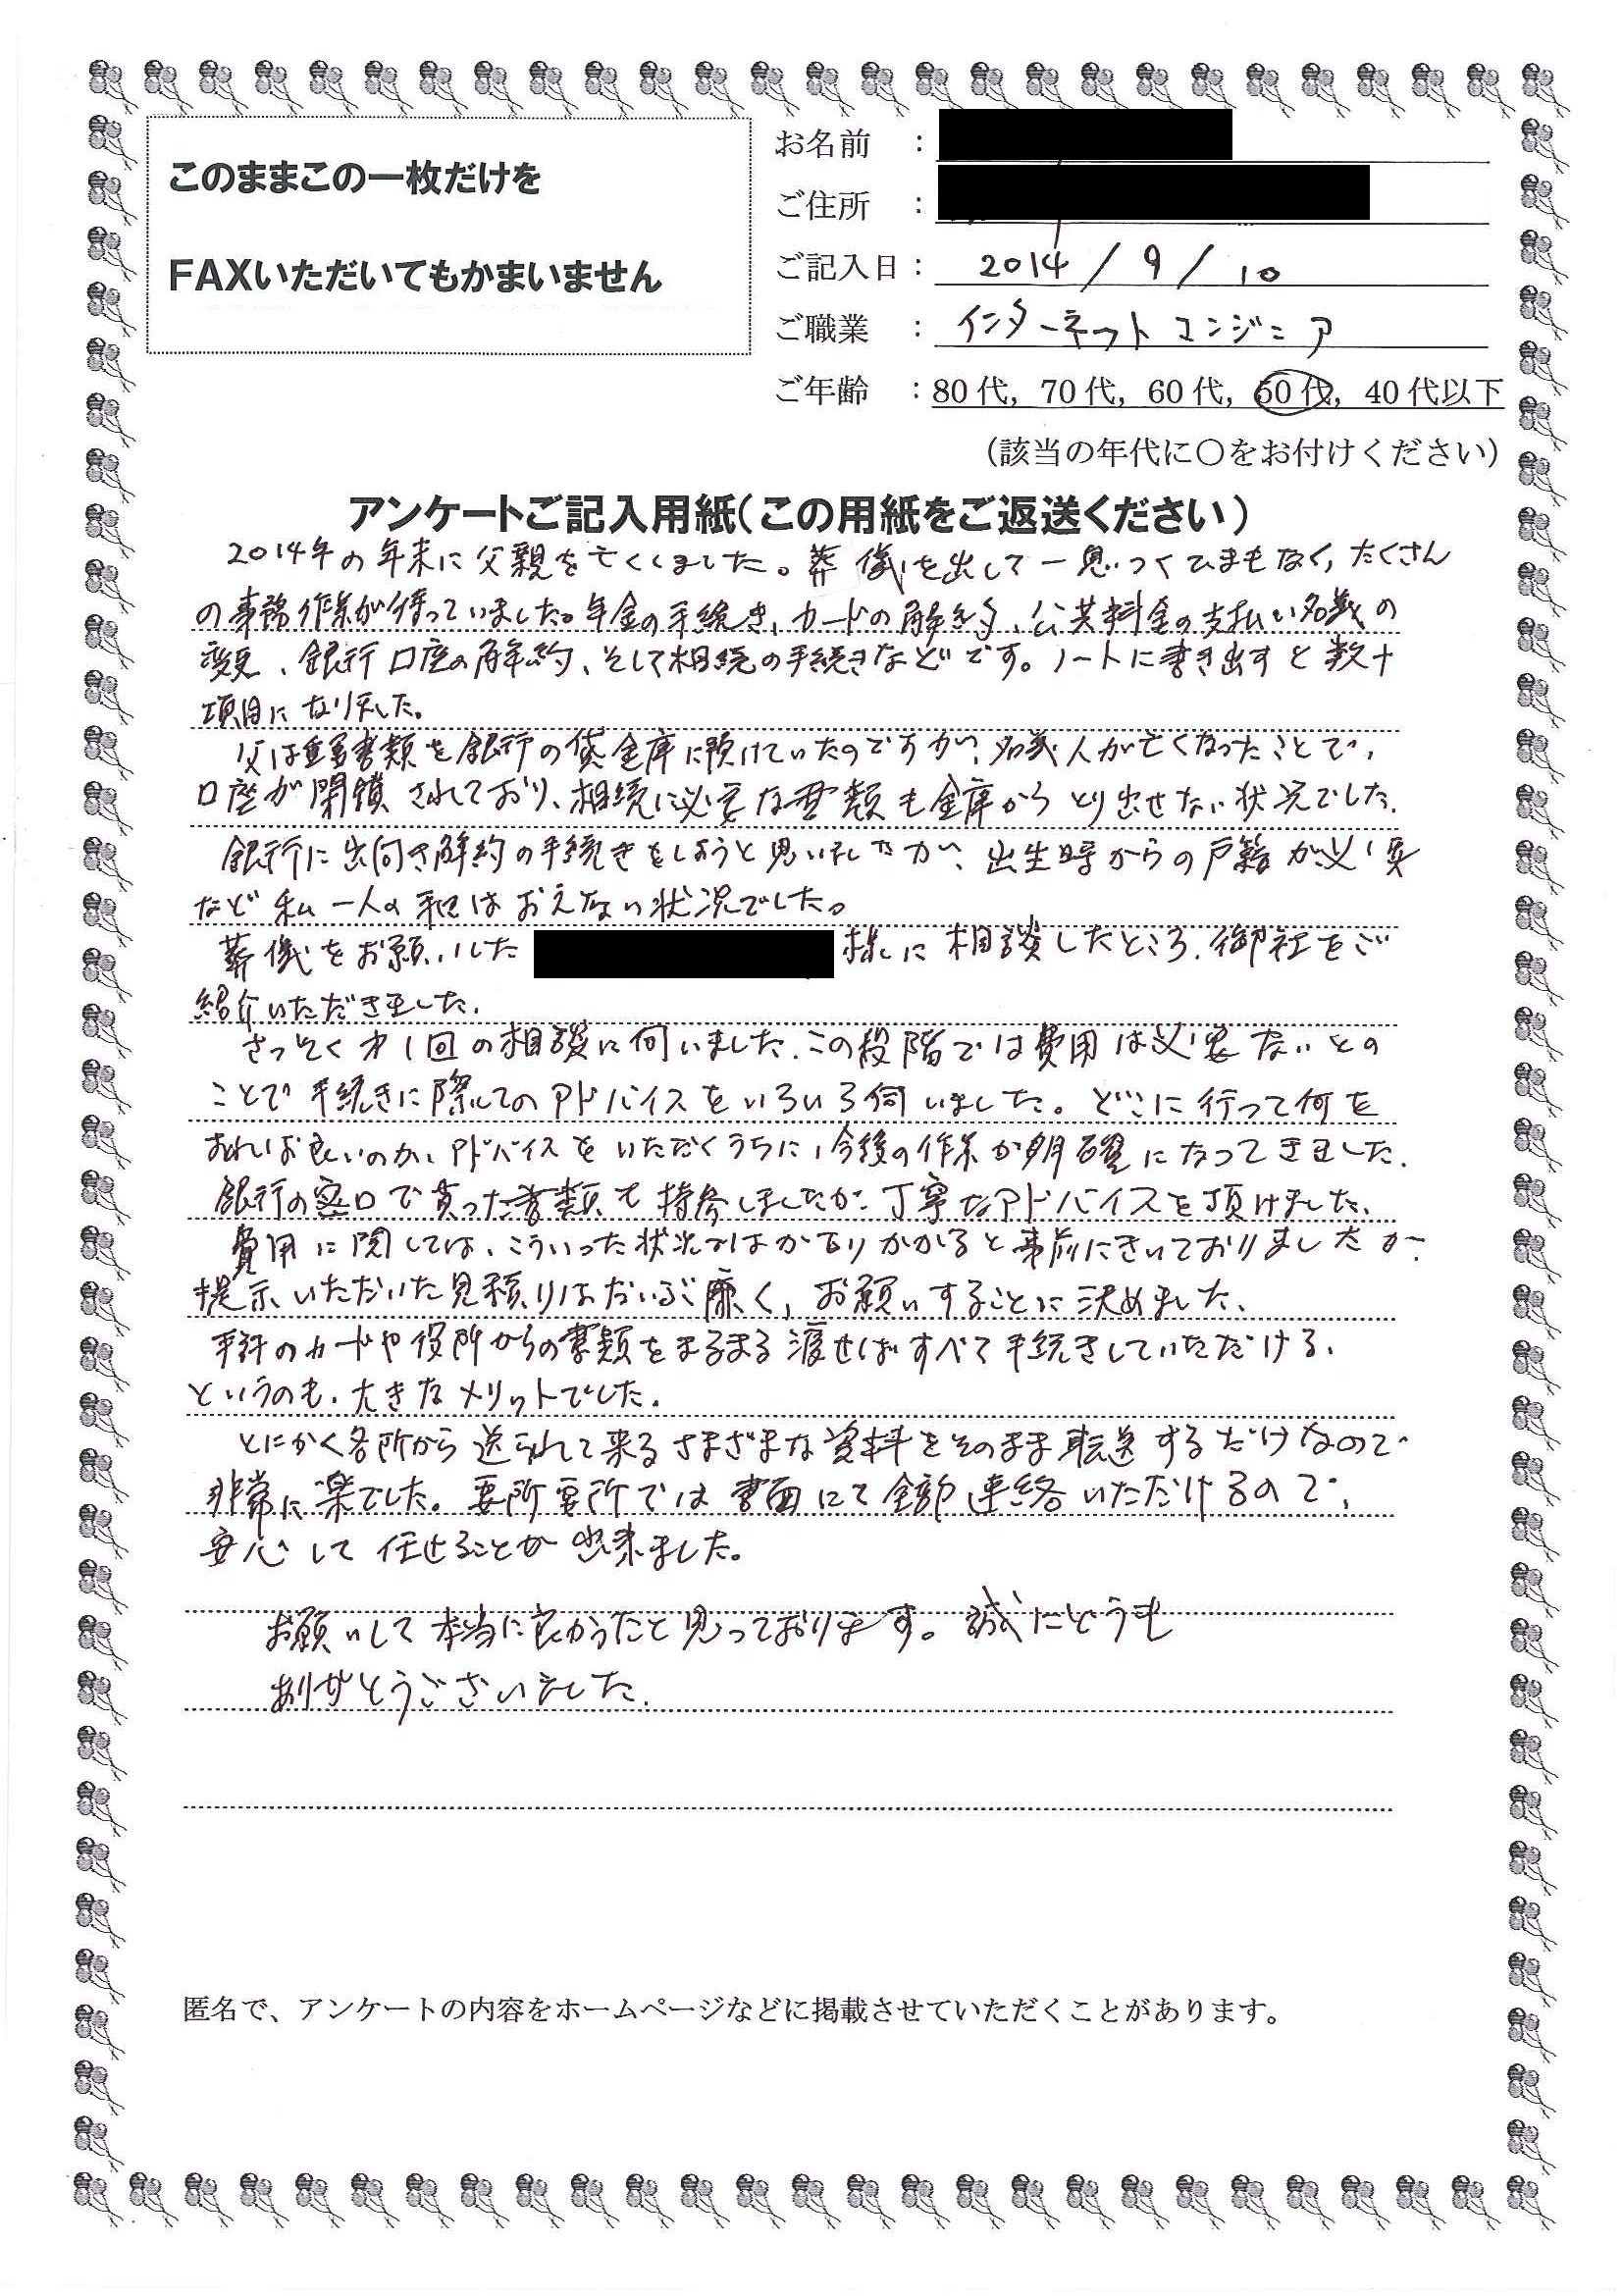 このままこの一枚だけを
FAXいただいてもかまいません
お名前 ：
ご住所 ：
ご記入日： 2014/9/10
ご職業 ： インターネットエンジニア
ご年齢 ：80代，70代，60代，50代，40代以下
（該当の年代に〇をお付けください）
アンケートご記入用紙（この用紙をご返送ください）
2014年の年末に父親を亡くしました。葬儀を出して一息つくひまもなく，たくさん
の事務作業が待っていました。年金の手続き、カードの解約、公共料金の支払い名義の
変更、銀行口座の解約、そして相続の手続きなどです。ノートに書き出すと数十
項目になりました。
父は重要書類を銀行の貸金庫に預けていたのですが、名義人が亡くなったことで、
口座が閉鎖されており、相続に必要な書類も金庫からとり出せない状況でした。
銀行に出向き解約の手続きをしようと思いましたが、出生時からの戸籍が必要
など私一人の手にはおえない状況でした。
葬儀をお願いした 様に相談したところ、御社をご
紹介いただきました。
さっそく才1回の相談に伺いました。この段階では費用は必要ないとの
ことで手続きに際してのアドバイスをいろいろ伺いました。どこに行って何を
すれば良いのか、アドバイスをいただくうちに，今後の作業が明確になってきました。
銀行の窓口で貰った書類も持参しましたが、丁寧なアドバイスを頂けました。
費用に関しては、こういった状況ではかなりかかると事前にきいておりましたが、
提示いただいた見積りはだいぶ廉く，お願いすることに決めました。
手許のカードや役所からの書類をまるまる渡せばすべて手続きしていただける、
というのも、大きなメリットでした。
とにかく各所から送られて来るさまざまな資料をそのまま転送するだけなので
非常に楽でした。要所要所では書面にて全部連絡いただけるので、
安心して任せることが出来ました。
お願いして本当に良かったと思っております。誠にどうも
ありがとうございました。
匿名で、アンケートの内容をホームページなどに掲載させていただくことがあります。